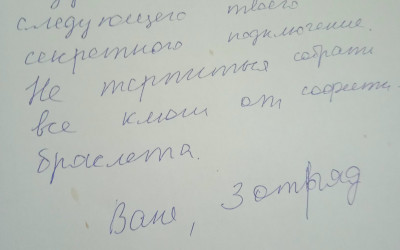 следующего твоего
секретного подключения.
Не терпиться собрать
все ключи от
браслета.
Ваш, 3 отряд